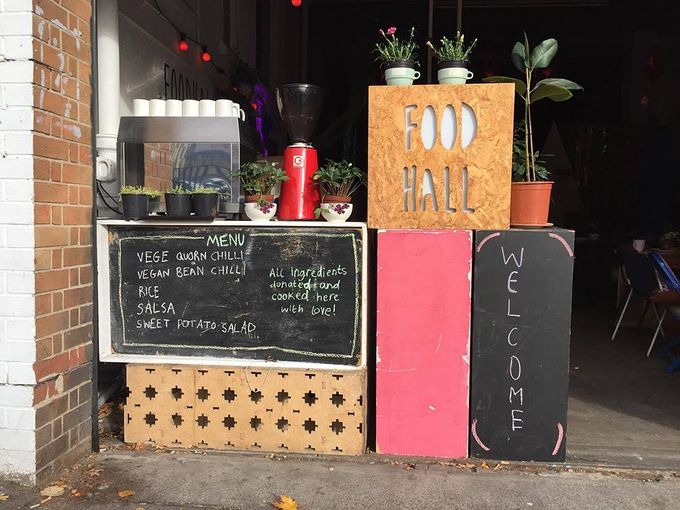 FOOD
HALL
MENU
VEGE QUORN CHILLI
VEGAN BEAN CHILLI
RICE
SALSA
SWEET POTATO SALAD
All ingredients
donated and
cooked here
with love!
WELCOME